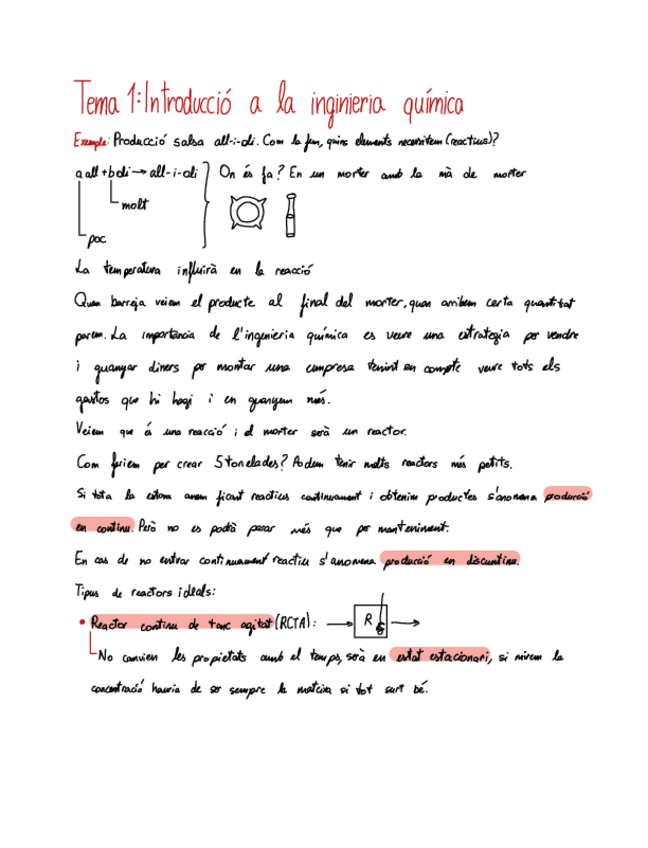 Tema 1: Introducció a la inginieria química
Exemple: Producció salsa all-i-oli. Com la fem, quins elements necessitem (reactius)?
a all + b oli → all-i-oli } On és fa? En un morter amb la mà de morter
molt
poc
La temperatura influirà en la reacció
Quan barreja veiem el producte al final del morter, quan arribem certa quantitat
parem. La importància de l'ingenieria química es veure una estrategia per vendre
i guanyar diners per montar una empresa tenint en compte veure tots els
gastos que hi hagi i en guanyem més.
Veiem que és una reacció i el morter serà un reactor.
Com fariem per crear 5 tonelades? Podem tenir molts reactors més petits.
Si tota la estona anem ficant reactius continuament i obtenim productes s'anomena producció
en continu. Però no es podrà parar més que per manteniment.
En cas de no entrar continuament reactiu s'anomena producció en discontinu.
Tipus de reactors ideals:
• Reactor continu de tanc agitat (RCTA): → R →
No canvien les propietats amb el temps, serà en estat estacionari, si mirem la
concentració hauria de ser sempre la mateixa si tot surt bé.